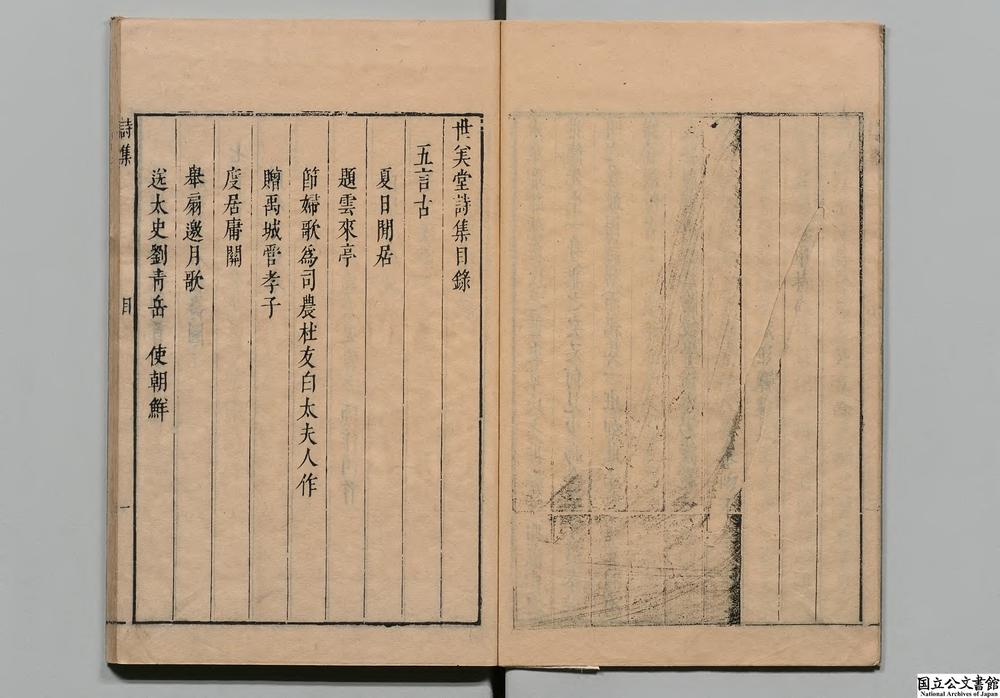 世美堂詩集目錄
五言古
夏日閒居
題雲來亭
節婦歌爲司農杜友白太夫人作
贈禹城晉孝子
度居庸關
舉扇邀月歌
送太史劉青岳 使朝鮮
詩集 目 一
国立公文書館
National Archives of Japan